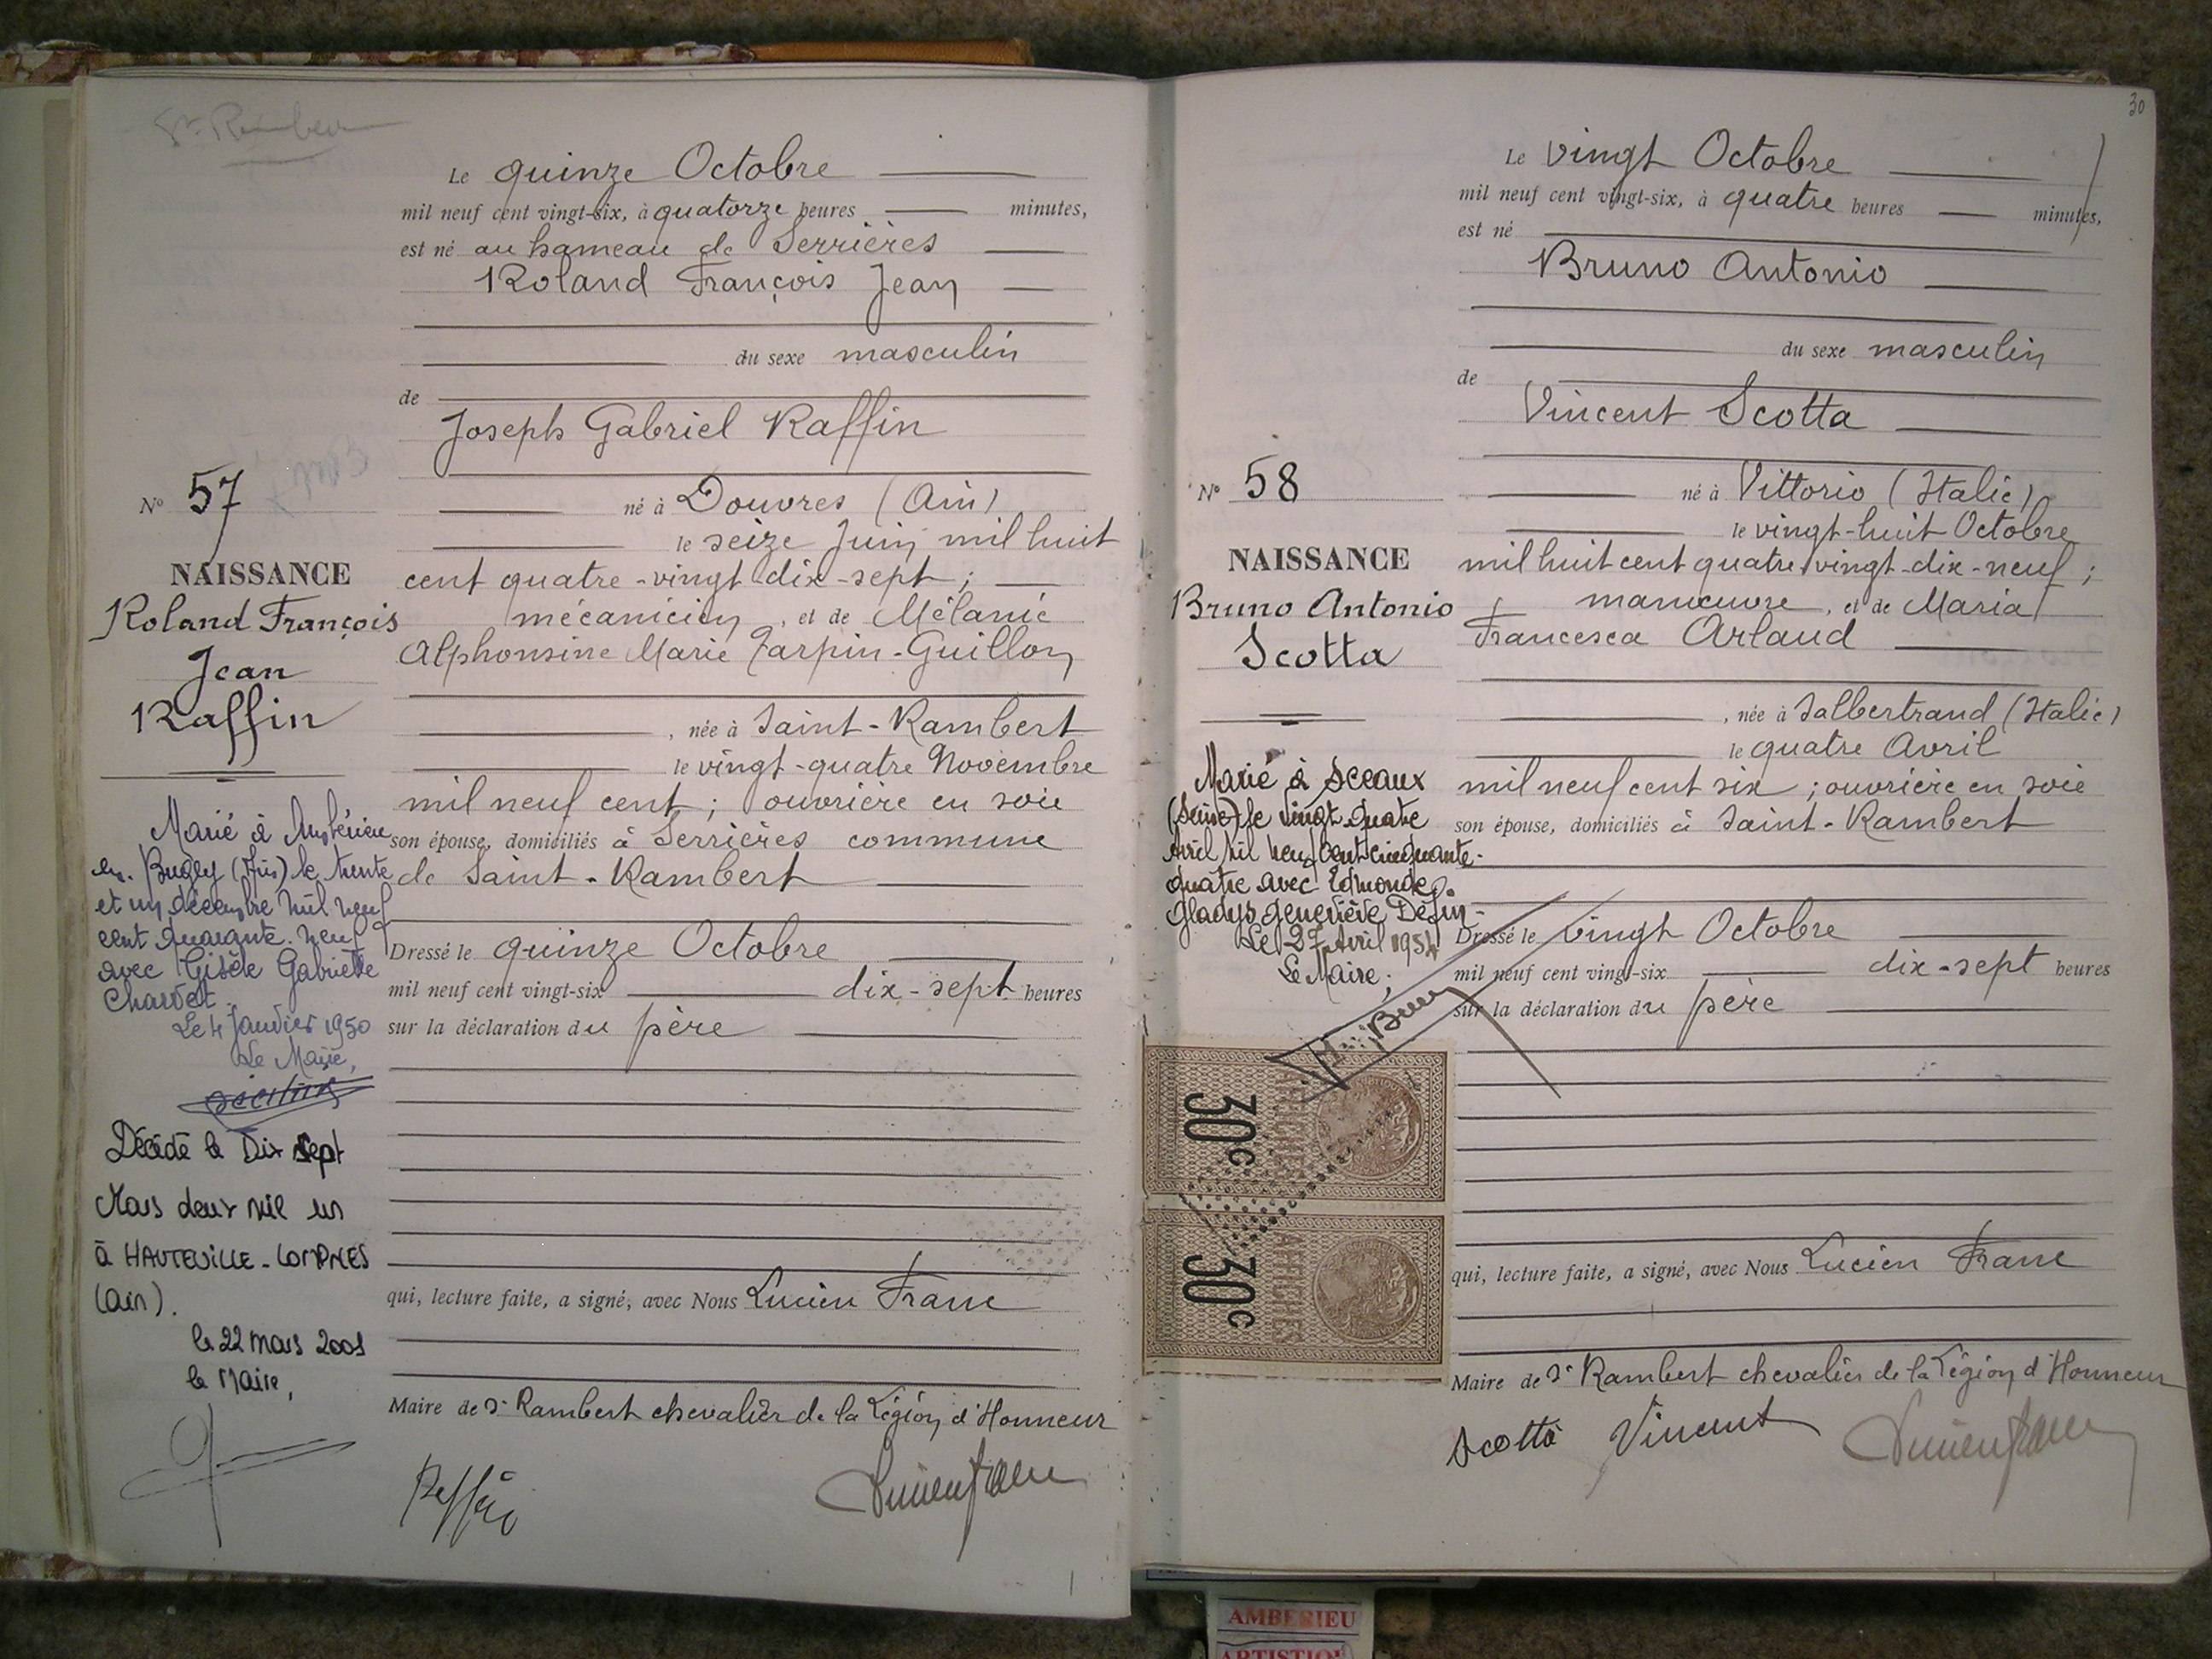 St Rambert
Le quinze Octobre
mil neuf cent vingt-six, à quatorze heures minutes,
est né au hameau de Serrières
Roland François Jean
du sexe masculin
de
Joseph Gabriel Raffin
né à Douvres (Ain)
le seize Juin mil huit
cent quatre-vingt dix-sept;
mécanicien, et de Mélanie
Alphonsine Marie Tarpin-Guillon
, née à Saint-Rambert
le vingt-quatre Novembre
mil neuf cent; ouvrière en soie
son épouse, domiciliés à Serrières commune
de Saint-Rambert
Dressé le quinze Octobre
mil neuf cent vingt-six dix-sept heures
sur la déclaration du père
qui, lecture faite, a signé, avec Nous Lucien Franc
Maire de St Rambert chevalier de la Légion d'Honneur
Raffin
N° 57
NAISSANCE
Roland François
Jean
Raffin
Marié à Ambérieu
en Bugey (Ain) le trente
et un décembre mil neuf
cent quarante-neuf
avec Gisèle Gabrielle
Charvet
Le 4 Janvier 1950
Le Maire,
Décédé le Dix sept
Mars deux mil un
à HAUTEVILLE-LOMPNES
(Ain).
le 22 mars 2001
le Maire,
30
Le vingt Octobre
mil neuf cent vingt-six, à quatre heures minutes,
est né
Bruno Antonio
du sexe masculin
de
Vincent Scotta
né à Vittorio (Italie)
le vingt-huit Octobre
mil huit cent quatre vingt-dix-neuf;
manœuvre, et de Maria
Francesca Arlaud
, née à Salbertrand (Italie)
le quatre Avril
mil neuf cent six; ouvrière en soie
son épouse, domiciliés à Saint-Rambert
Dressé le vingt Octobre
mil neuf cent vingt-six dix-sept heures
sur la déclaration du père
qui, lecture faite, a signé, avec Nous Lucien Franc
Maire de St Rambert chevalier de la Légion d'Honneur
Scotta Vincent
N° 58
NAISSANCE
Bruno Antonio
Scotta
Marié à Sceaux
(Seine) le vingt quatre
Avril mil neuf cent cinquante-
quatre avec Edmonde
Gladys Geneviève
Le 27 Avril 1954
Le Maire;
30c AFFICHES
30c AFFICHES
AMBERIEU